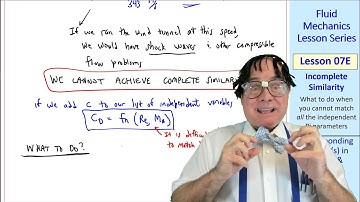 343 m/s
If we ran the wind tunnel at this speed,
We would have shock waves & other compressible
flow problems
WE CANNOT ACHIEVE COMPLETE SIMILAR
if we add c to our list of independent variables,
CD = fn (Re, Ma)
It is difficul
to match
WHAT TO DO?
Fluid
Mechanics
Lesson Series
Lesson 07E
Incomplete
Similarity
What to do when
you cannot match
all the independent
Pi parameters
ponding
(s) in
&